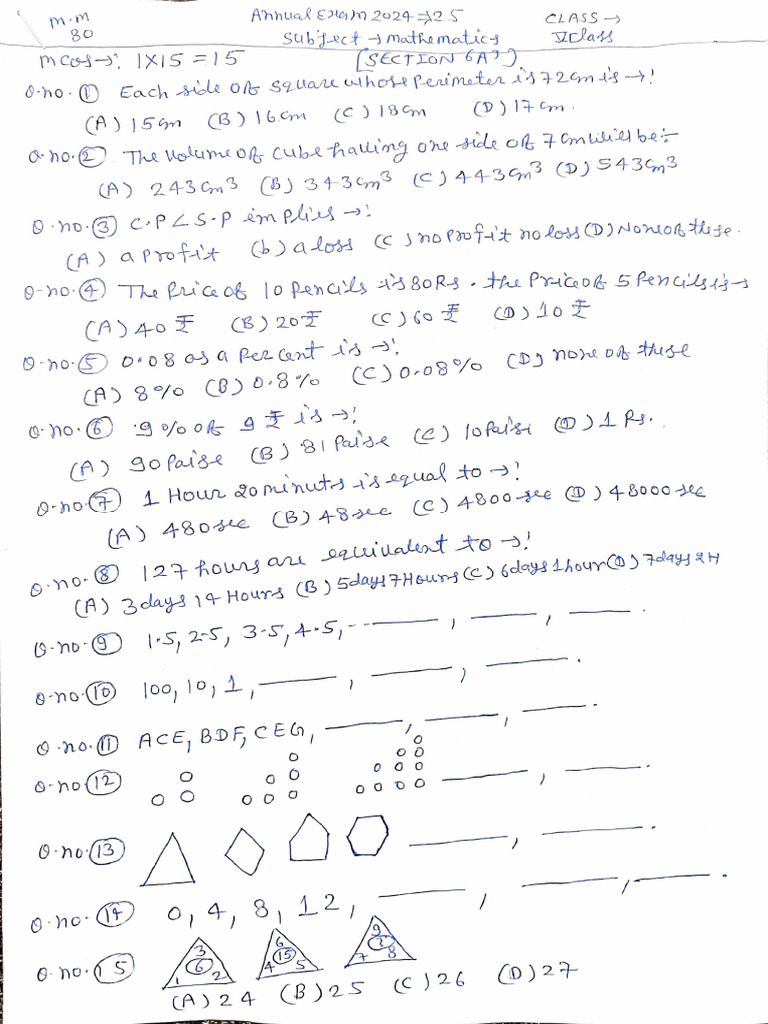 M.M Annual Exam 2024⇒25 CLASS→
80 Subject→mathematics V class
mcqs→: 1×15=15 [SECTION 'A']
Q.no.① Each side of square whose perimeter is 72cm is→!
(A) 15cm (B) 16cm (C) 18cm (D) 17cm.
Q.no.② The volume of cube having one side of 7cm will be:-
(A) 243cm³ (B) 343cm³ (C) 443cm³ (D) 543cm³
Q.no.③ C.P∠S.P implies→!
(A) a profit (b) a loss (C) no profit no loss (D) None of these.
Q.no.④ The Price of 10 pencils is 80Rs. the Price of 5 Pencils is→
(A) 40₹ (B) 20₹ (C) 60₹ (D) 10₹
Q.no.⑤ 0.08 as a percent is→!
(A) 8% (B) 0.8% (C) 0.08% (D) none of these
Q.no.⑥ 9% of 9₹ is→!
(A) 90 Paise (B) 81 Paise (C) 10 Paise (D) 1 Rs.
Q.no.⑦ 1 Hour 20 minuts is equal to→!
(A) 480 sec (B) 48 sec (C) 4800 sec (D) 48000 sec
Q.no.⑧ 127 hours are equivalent to→!
(A) 3days 14 Hours (B) 5days 7Hours (C) 6days 1hour (D) 7days 2H
Q.no.⑨ 1.5, 2.5, 3.5, 4.5, -- ____, ____, ____.
Q.no.⑩ 100, 10, 1, ____, ____, ____.
Q.no.⑪ ACE, BDF, CEG, ____, ____, ____.
Q.no.⑫ ____, ____.
Q.no.⑬ ____, ____.
Q.no.⑭ 0, 4, 8, 12, ____, ____, ____.
Q.no.⑮ 3 6 1 2 6 15 4 5 9 ? 7 8
(A) 24 (B) 25 (C) 26 (D) 27